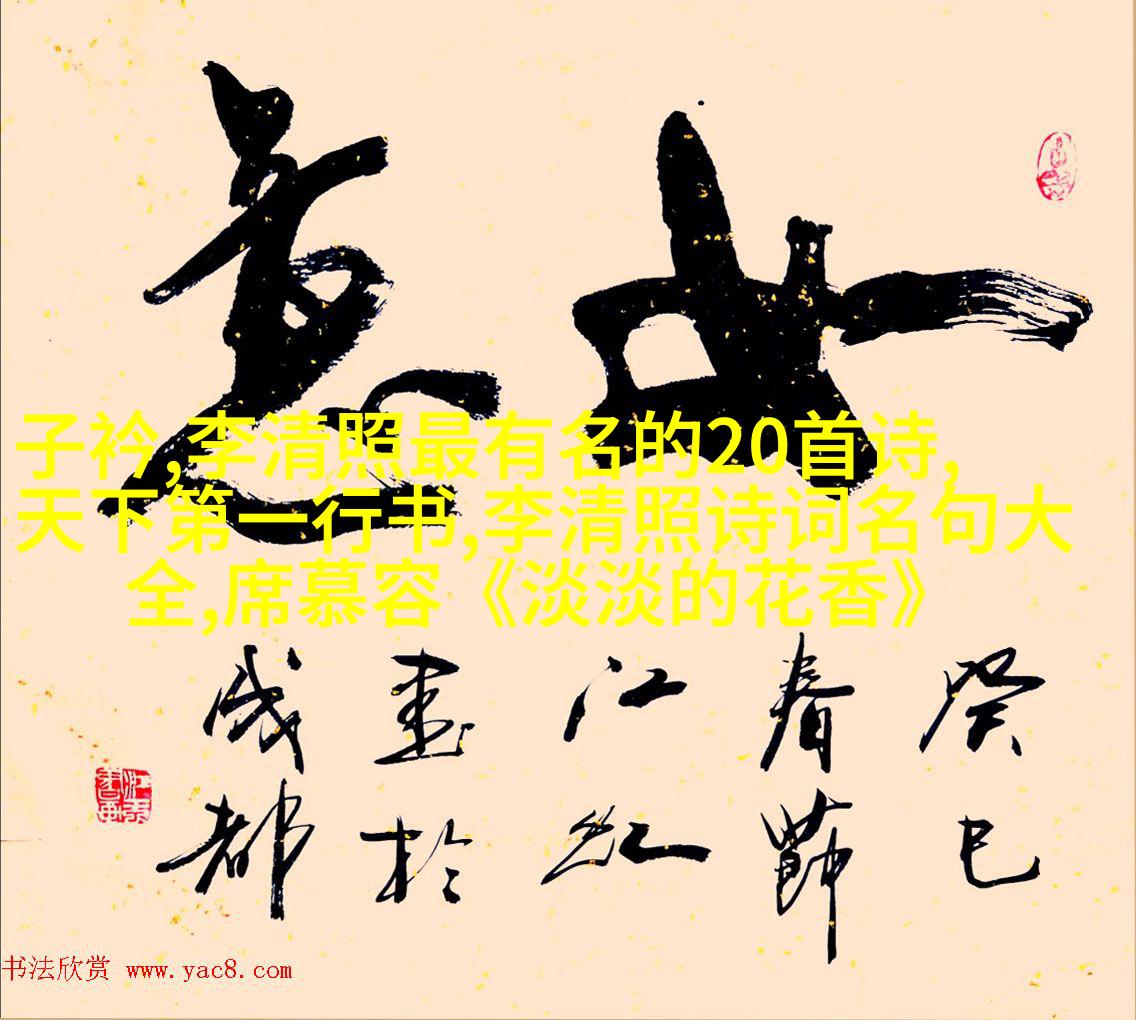 如意
子衿,李清照最有名的20首诗,
天下第一行书,李清照诗词名句大
全,席慕容《淡淡的花香》
癸巳
春節
江红
書於
成都
书法欣赏 www.yac8.com